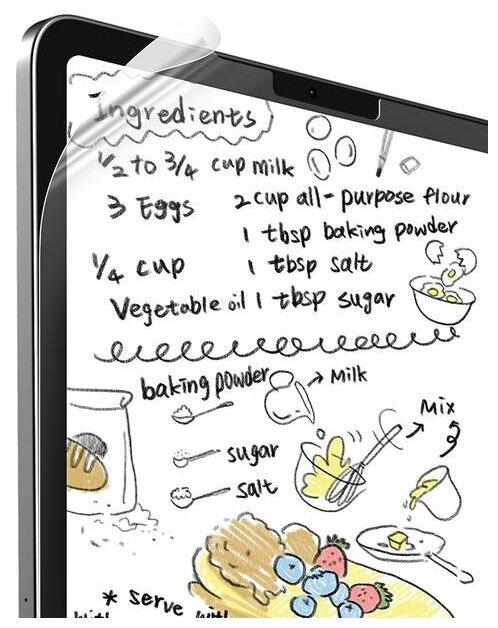 Ingredients
1/2 to 3/4 cup milk
3 Eggs
2 cup all-purpose flour
1 tbsp baking powder
1/4 cup
1 tbsp salt
Vegetable oil
1 tbsp sugar
baking powder
Milk
Mix
sugar
salt
* serve with
with